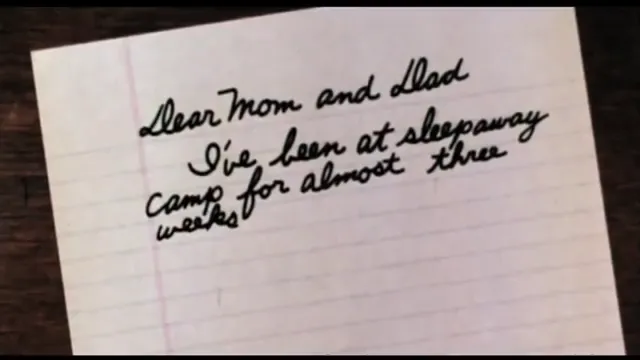 Dear Mom and Dad
I've been at sleepaway
camp for almost three
weeks